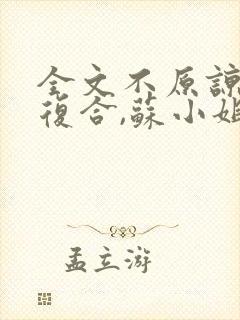 全文不原諒
復合,蘇小姐
孟立游